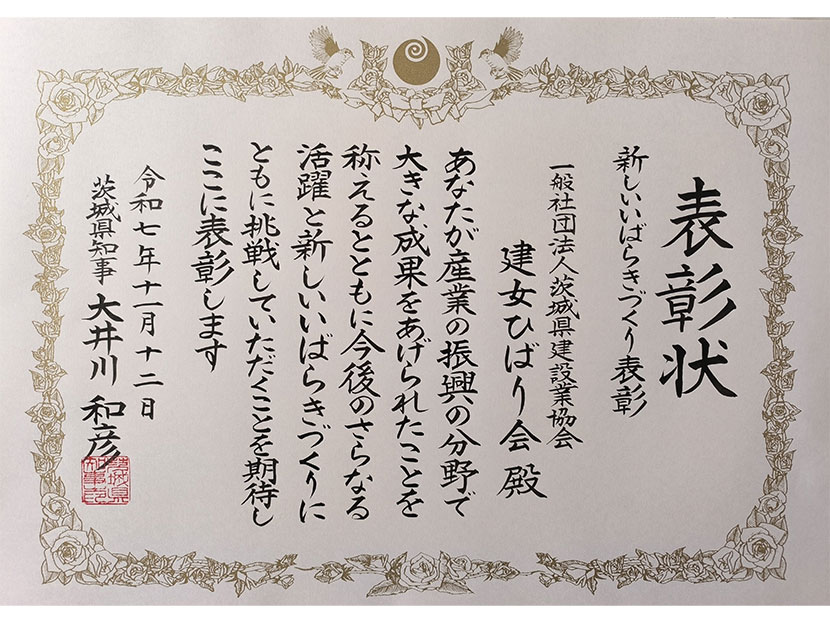 表彰状
新しいいばらきづくり表彰
一般社団法人茨城県建設業協会
建女ひばり会 殿
あなたが産業の振興の分野で
大きな成果をあげられたことを
称えるとともに今後のさらなる
活躍と新しいいばらきづくりに
ともに挑戦していただくことを期待し
ここに表彰します
令和七年十一月十二日
茨城県知事 大井川 和彦